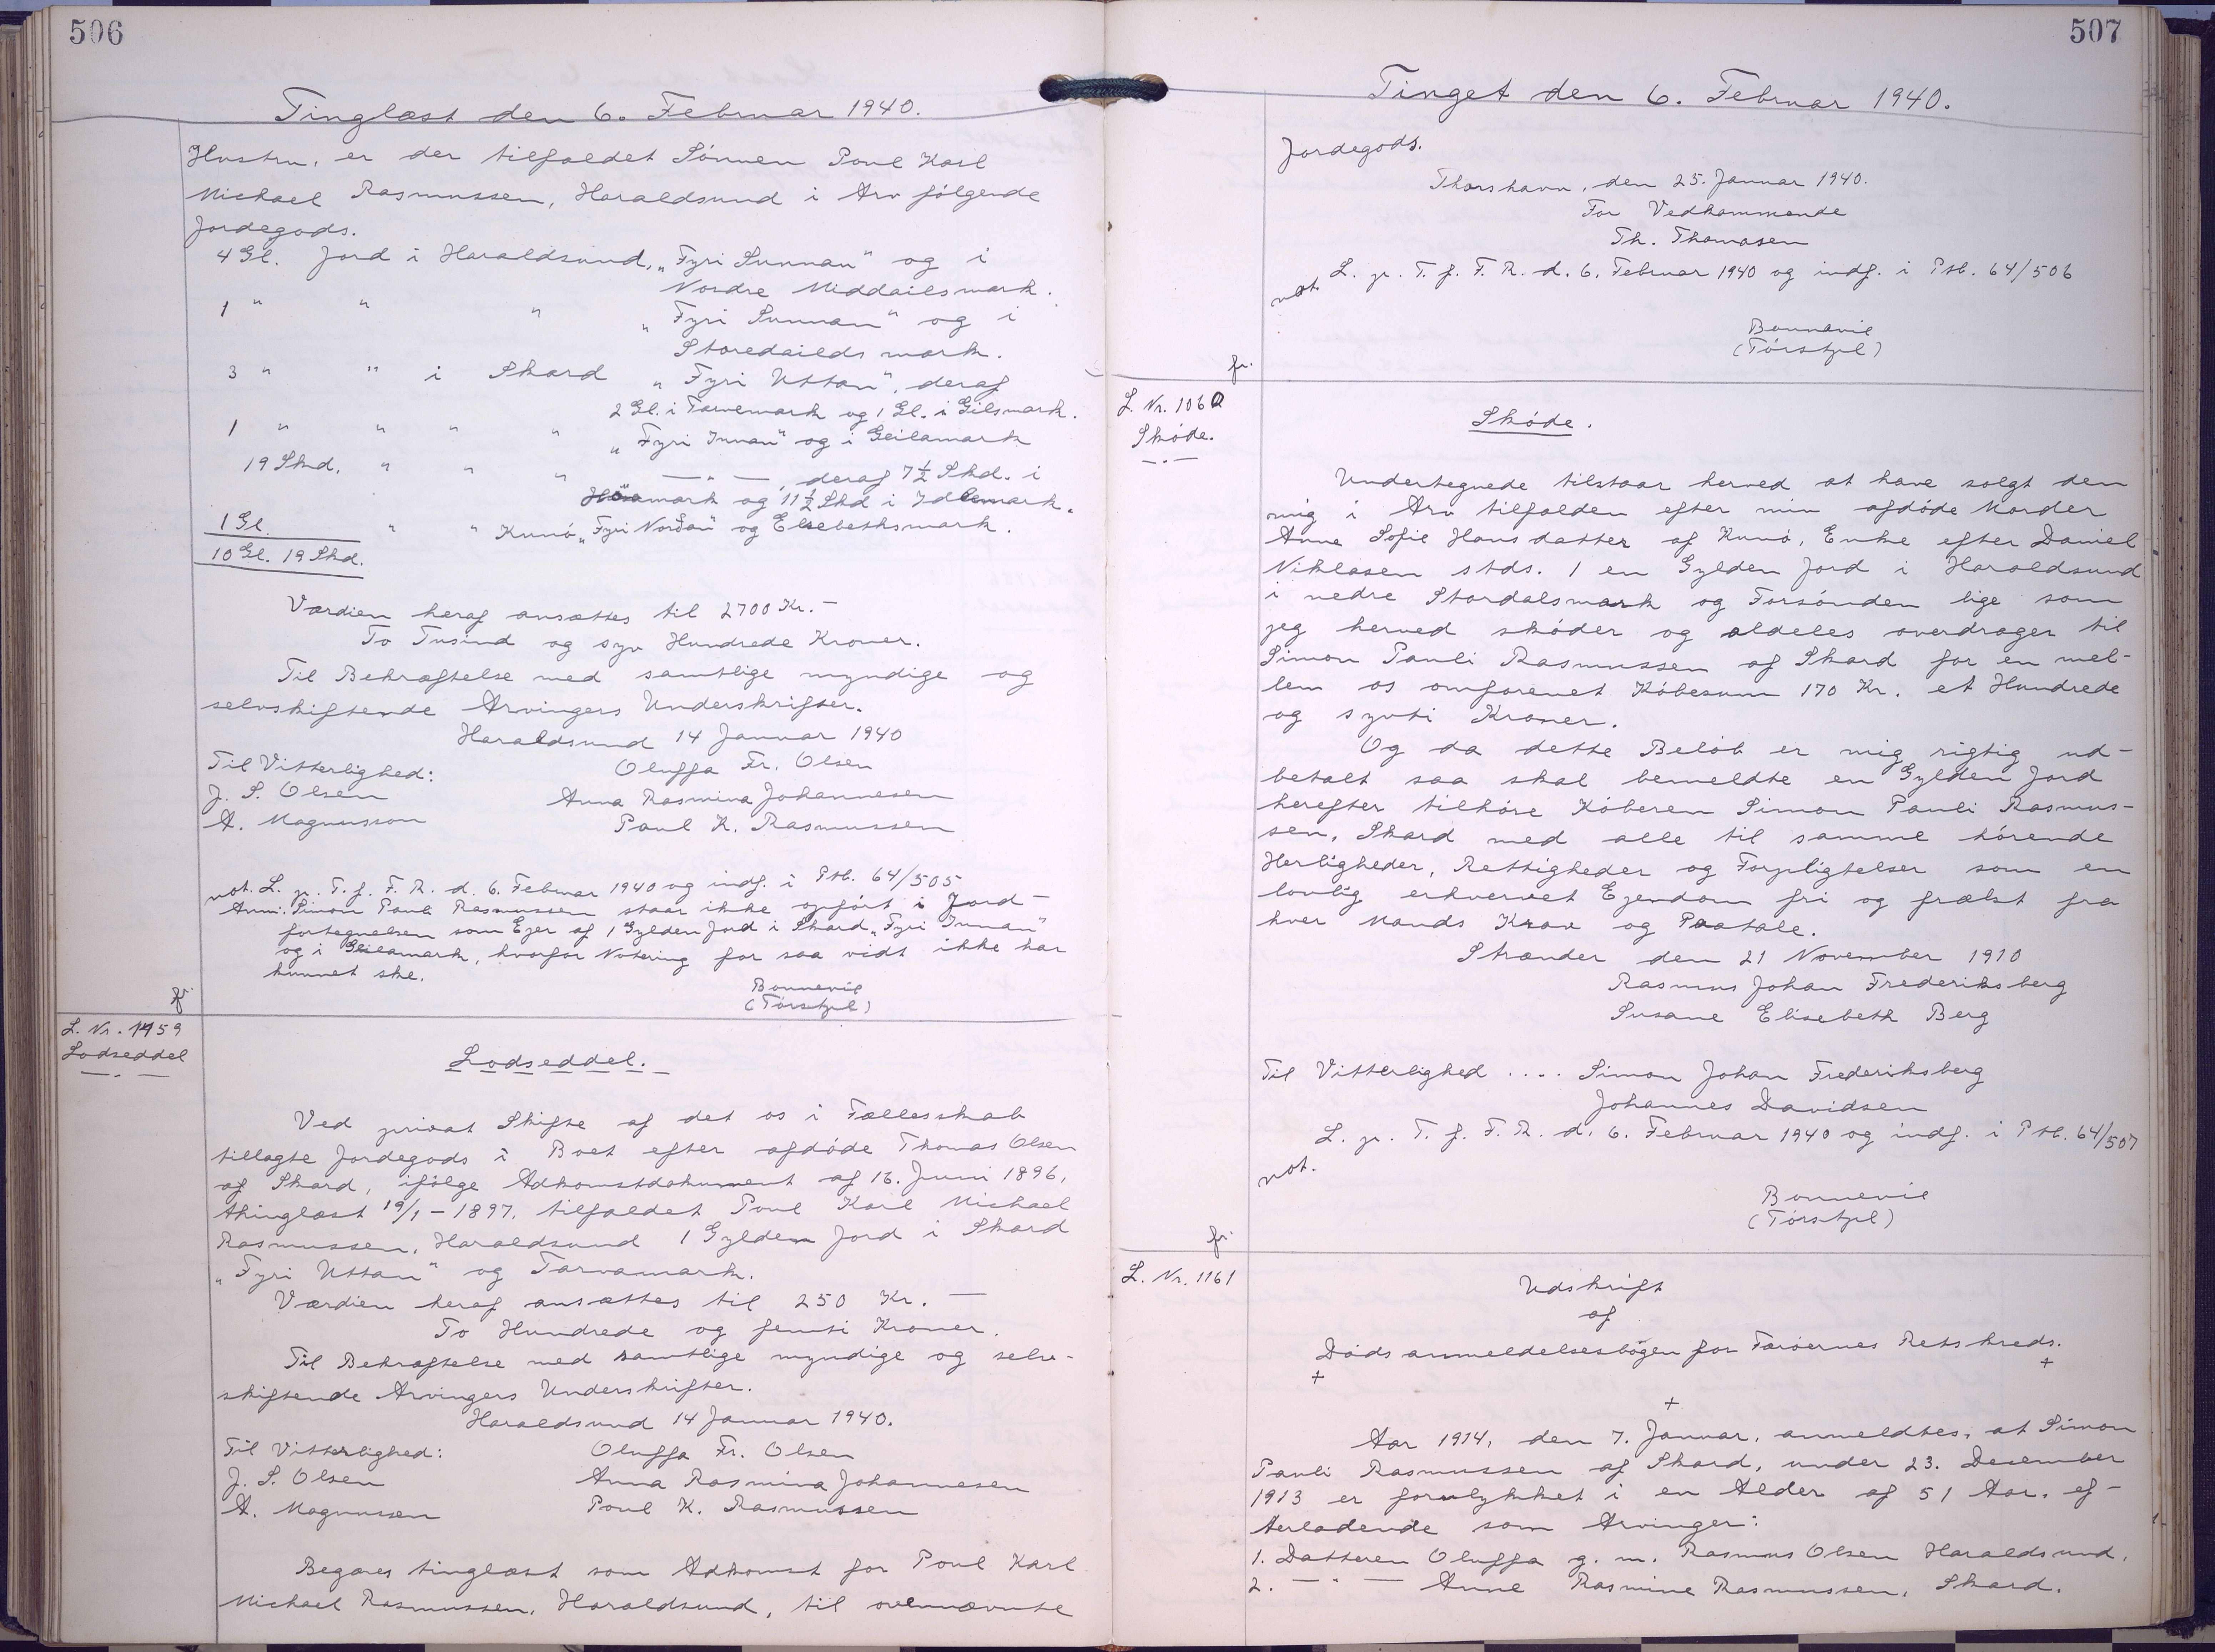 506
Tinglæst den 6. Februar 1940.
Hustru, er der tilfaldet Sönnen Poul Karl
Michael Rasmussen, Haraldsund i Arv følgende
Jordegods.
4 Gl. Jord i Haraldsund, „Fyri Sunnan" og i
Nordre Middailsmark.
1 " " " „Fyri Sunnan" og i
Storedailds mark.
3 " " i Skard „Fyri Uttan", deraf
2 Gl. i Tarvemark og 1 Gl. i Gilsmark.
1 " " " " „Fyri Innan" og i Geilamark
19 Skd. " " " — " —, deraf 7½ Skd. i
mark og 11½ Skd i Idlemark.
1 Gl. " " Kunö „Fyri Norðan" og Elsebethsmark.
10 Gl. 19 Skd.
Værdien heraf ansættes til 2700 Kr.–
To Tusind og syv Hundrede Kroner.
Til Bekræftelse med samtlige myndige og
selvskiftende Arvingers Underskrifter.
Haraldsund 14 Januar 1940
Til Vitterlighed: Oluffa Fr. Olsen
J. S. Olsen Anna Rasmina Johannesen
A. Magnusson Poul K. Rasmussen
not. L. p. T. f. F. R. d. 6. Februar 1940 og indf. i Ptb. 64/505
Anm. Simon Pauli Rasmussen staar ikke opført i Jord-
fortegnelsen som Ejer af 1 Gylden Jord i Skard „Fyri Innan"
og i Geilamark, hvorfor Notering for saa vidt ikke har
kunnet ske.
Bonnevie
(Törstpl)
fr.
L. Nr. 1159
Lodseddel
Lodseddel.
Ved privat Skifte af det os i Fællesskab
tillagte Jordegods i Boet efter afdöde Thomas Olsen
af Skard, ifølge Adkomstdokument af 16. Juni 1896,
thinglæst 19/1 – 1897, tilfaldet Poul Karl Michael
Rasmussen, Haraldsund 1 Gylden Jord i Skard
„Fyri Uttan" og Tarvamark.
Værdien heraf ansættes til 250 Kr. —
To Hundrede og femti Kroner.
Til Bekræftelse med samtlige myndige og selv-
skiftende Arvingers Underskrifter.
Haraldsund 14 Januar 1940.
Til Vitterlighed: Oluffa Fr. Olsen
J. S. Olsen Anna Rasmina Johannesen
A. Magnussen Poul K. Rasmussen
Begæres tinglæst som Adkomst for Poul Karl
Michael Rasmussen, Haraldsund, til ovennævnte
507
Tinget den 6. Februar 1940.
Jordegods.
Thorshavn, den 25. Januar 1940.
For Vedkommende
Th. Thomasen
L. p. T. f. F. R. d. 6. Februar 1940 og indf. i Ptb. 64/506
not.
Bonnevie
(Törstpl)
fr.
L. Nr. 1060
Sköde.
Sköde.
Undertegnede tilstaar herved at have solgt den
mig i Arv tilfalden efter min afdöde Moder
Anne Sofie Hansdatter af Kunö, Enke efter Daniel
Niklasen stds. 1 en Gylden Jord i Haraldsund
i nedre Stordalsmark og Forsönden lige som
jeg herved sköder og aldeles overdrager til
Simon Pauli Rasmussen af Skard for en mel-
lem os omforenet Köbesum 170 Kr. et Hundrede
og syvti Kroner.
Og da dette Belöb er mig rigtig ud-
betalt saa skal bemeldte en Gylden Jord
herefter tilhöre Köberen Simon Pauli Rasmus-
sen, Skard med alle til samme hörende
Herligheder, Rettigheder og Forpligtelser som en
lovlig erhvervet Ejendom fri og frælst fra
hver Mands Krav og Paatale.
Strænder den 21 November 1910
Rasmus Johan Frederiksberg
Susane Elisebeth Berg
Til Vitterlighed .... Simon Johan Frederiksberg
Johannes Davidsen
L. p. T. f. F. R. d. 6. Februar 1940 og indf. i Ptb. 64/507
not.
Bonnevie
(Törstpl)
fr.
L. Nr. 1161
Udskrift
af
Dödsanmeldelsesbogen for Færöernes Retskreds.
Aar 1914, den 7. Januar, anmeldtes, at Simon
Pauli Rasmussen af Skard, under 23. Desember
1913 er forulykket i en Alder af 51 Aar, ef-
terladende som Arvinger:
1. Datteren Oluffa g. m. Rasmus Olsen Haraldsund.
2. — " — Anne Rasmine Rasmussen, Skard.